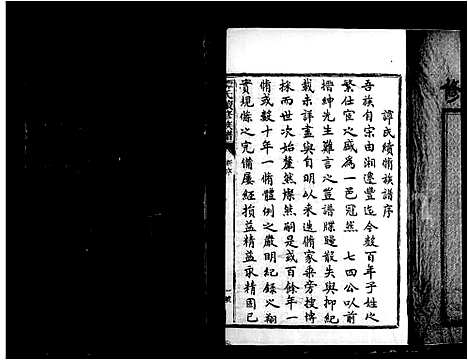 譚氏續脩族譜序
吾族自宗由湘遷豐迄今數百年子姓之
繁仕宦之盛為一邑冠然 七四公以前
搢紳先生難言之豈譜牒蹧散失與抑紀
載未詳盡與自明以來迭脩家乘旁搜博
採而世次始釐然燦然嗣是或百餘年一
脩或數十年一脩體例之嚴明紀錄之翔
實規條之完備屢經損益精益求精固已
氏續修族譜
新序
一
修